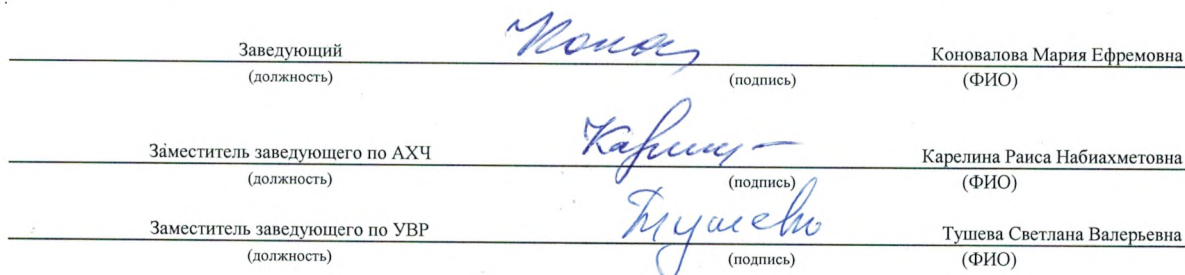 Заведующий Коновалова Мария Ефремовна
(должность) (подпись) (ФИО)
Заместитель заведующего по АХЧ Карелина Раиса Набиахметовна
(должность) (подпись) (ФИО)
Заместитель заведующего по УВР Тушева Светлана Валерьевна
(должность) (подпись) (ФИО)